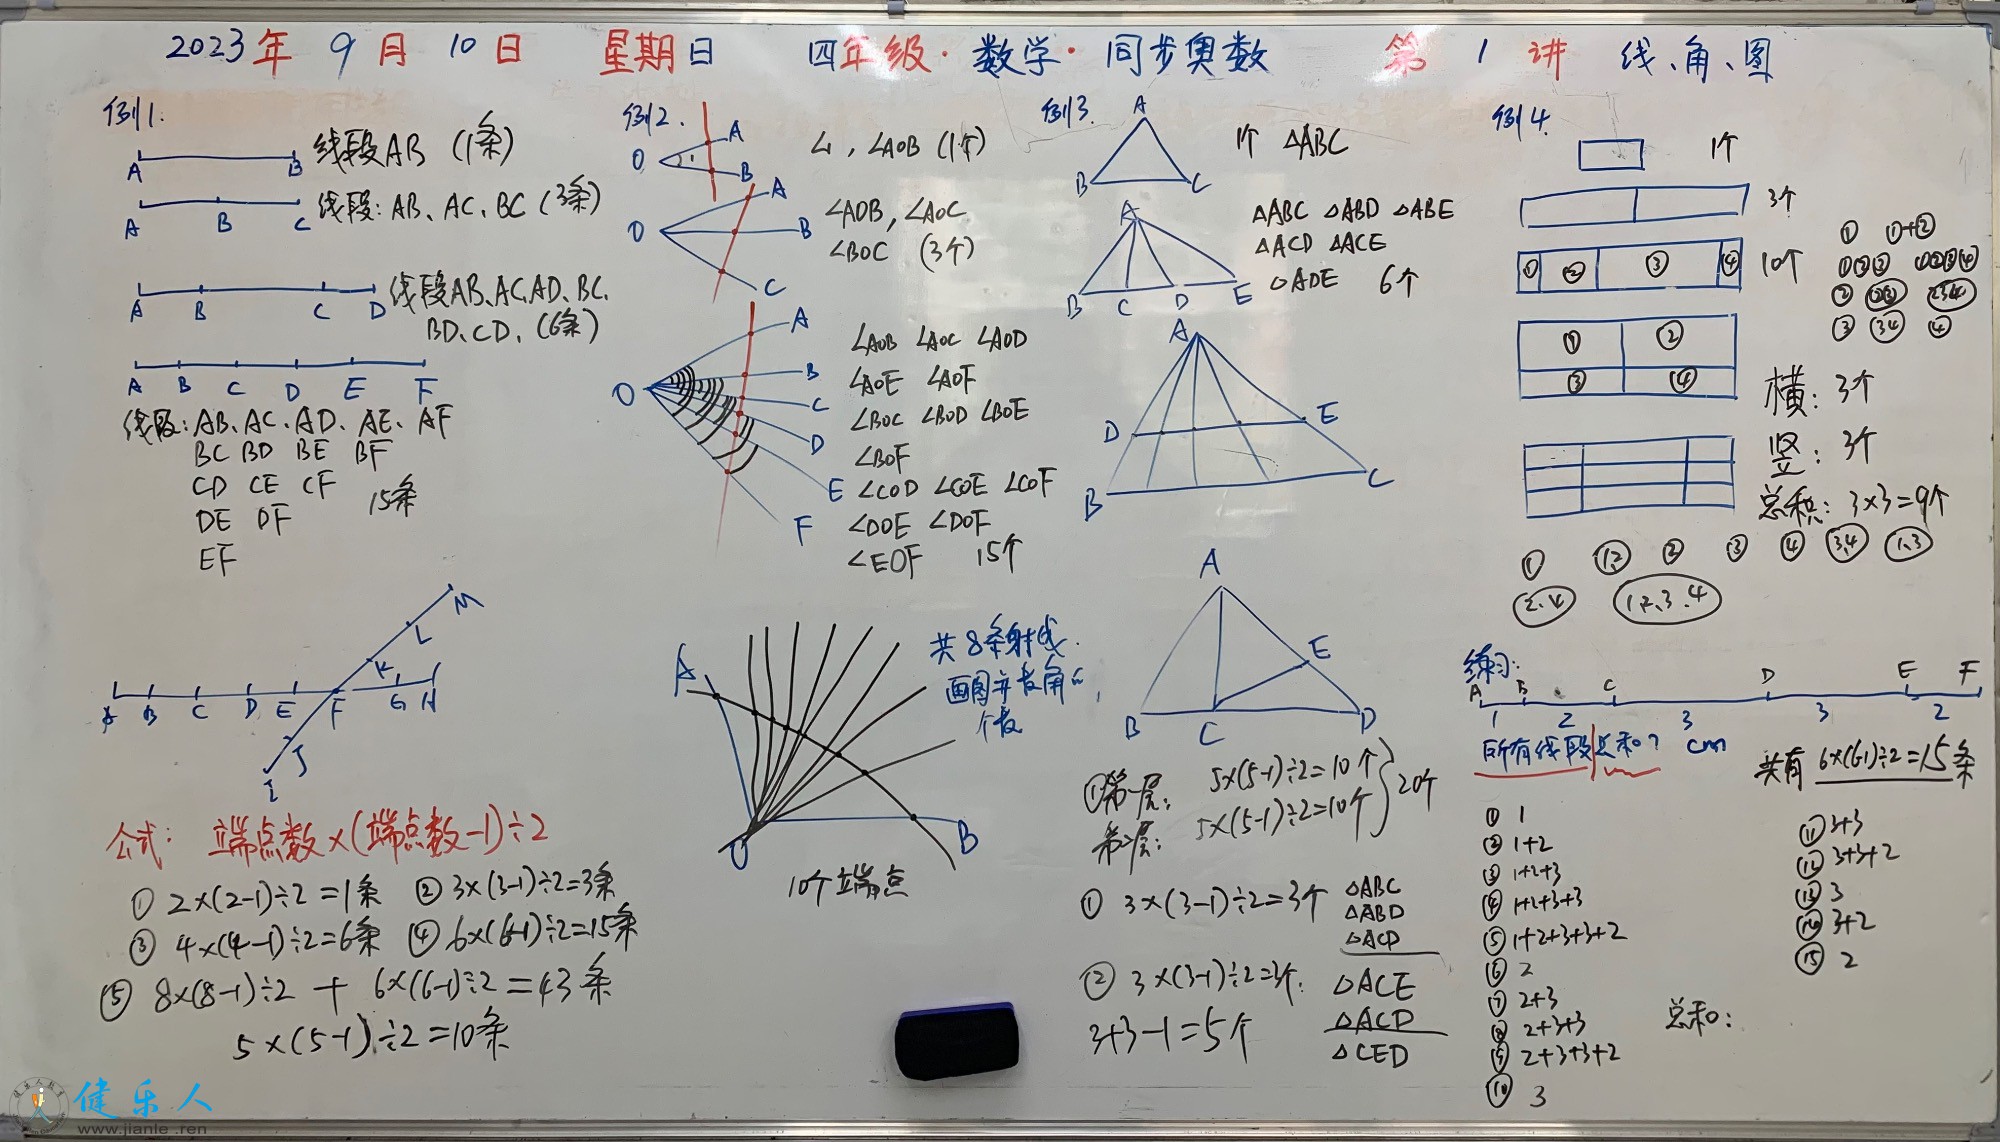 2023年 9月 10日 星期日 四年级·数学·同步奥数 第1讲 线、角、图
例1.
A B 线段AB (1条)
A B C 线段: AB、AC、BC (3条)
A B C D 线段AB、AC、AD、BC、
BD、CD、(6条)
A B C D E F
线段: AB、AC、AD、AE、AF
BC BD BE BF
CD CE CF 15条
DE DF
EF
A B C D E F G H I J K L M
公式: 端点数×(端点数-1)÷2
① 2×(2-1)÷2=1条 ② 3×(3-1)÷2=3条
③ 4×(4-1)÷2=6条 ④ 6×(6-1)÷2=15条
⑤ 8×(8-1)÷2 + 6×(6-1)÷2=43条
5×(5-1)÷2=10条
例2.
O A B 1 ∠1, ∠AOB (1个)
O A B C ∠AOB, ∠AOC
∠BOC (3个)
O A B C D E F
∠AOB ∠AOC ∠AOD
∠AOE ∠AOF
∠BOC ∠BOD ∠BOE
∠BOF
∠COD ∠COE ∠COF
∠DOE ∠DOF
∠EOF 15个
A O B
共8条射线
画图并数角的
个数
10个端点
例3.
A B C 1个 △ABC
A B C D E
△ABC △ABD △ABE
△ACD △ACE
△ADE 6个
A D E B C
A B C D E
①第一层: 5×(5-1)÷2=10个
第二层: 5×(5-1)÷2=10个
20个
① 3×(3-1)÷2=3个
△ABC
△ABD
△ACD
② 3×(3-1)÷2=3个.
△ACE
△ACD
△CED
3+3-1=5个
例4.
1个
3个
① ② ③ ④ 10个
① ①+②
①②③ ①②③④
② ②③ 234
③ 34 ④
① ② ③ ④
横: 3个
竖: 3个
总积: 3×3=9个
① 1,2 ② ③ ④ 3,4 1,3
2.4 1,2,3.4
练习:
A B C D E F
1 2 3 3 2
所有线段总和? cm
共有 6×(6-1)÷2=15条
① 1
② 1+2
③ 1+2+3
④ 1+2+3+3
⑤ 1+2+3+3+2
⑥ 2
⑦ 2+3
⑧ 2+3+3
⑨ 2+3+3+2
⑩ 3
⑪ 3+3
⑫ 3+3+2
⑬ 3
⑭ 3+2
⑮ 2
总和:
健乐人
www.jianle.ren